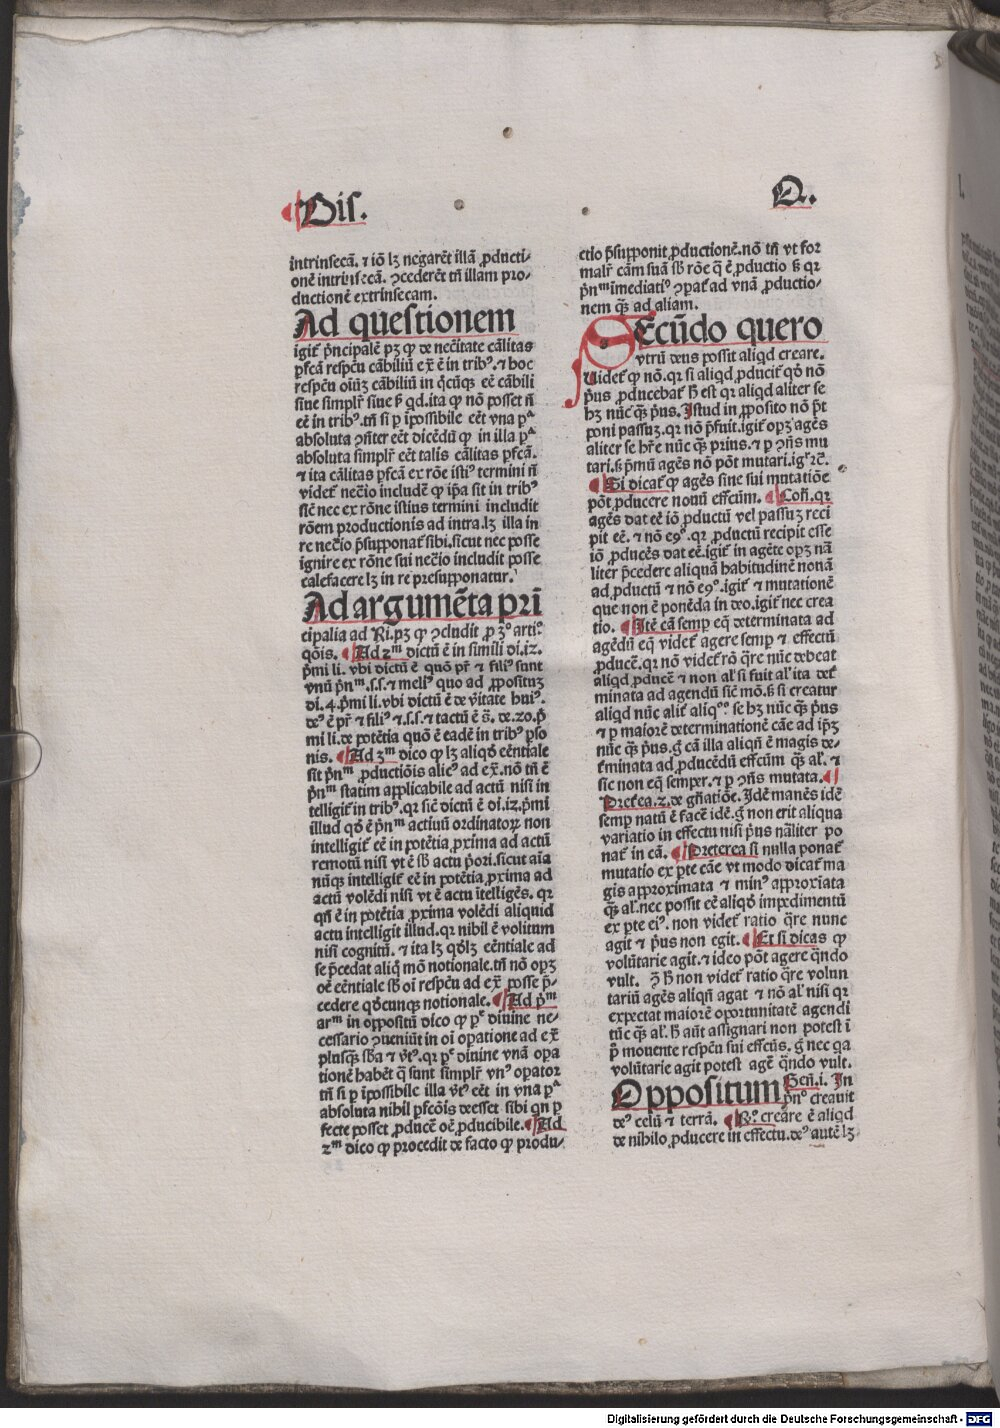 Dis.
Q.
intrinsecā. ⁊ iō lꝫ negarēt illā ꝓducti-
onē intrinsecā. ꝯcederēt tñ illam pro-
ductionē extrinsecam.
Ad questionem
igit᷑ p̄ncipalē pꝫ ꝙ de nec̄itate cālitas
ꝑfcā respcū cābiliū ex̄ ē in tribꝰ. ⁊ hoc
respcū oīuꝫ cābiliū in q̄cūqꝫ eē cābili
siue simplr̄ siue ẞ qd. ita ꝙ nō posset ñ
eē in tribꝰ. tñ si ꝑ īpossibile eēt vna pᵃ
absoluta ꝯñter eēt dicēdū ꝙ in illa pᵃ
absoluta simplr̄ eēt talis cālitas ꝑfcā.
⁊ ita cālitas ꝑfcā ex rōe istiꝰ termini ñ
videt᷑ nec̄io includē ꝙ ip̄a sit in tribꝰ
sic̄ nec ex rōne istius termini includit
rōem productionis ad intra. lꝫ illa in
re nec̄io p̄supponat᷑ sibi. sicut nec posse
ignire ex rōne sui nec̄io includit posse
calefacere lꝫ in re presupponatur.
Ad argumēta pri
cipalia ad Ri. pꝫ ꝙ ꝯcludit ꝓ 3° arti°
qōis. Ad 2ᵐ dictū ē in simili di. 12.
p̄mi li. vbi dictū ē quō pr̄ ⁊ filiꝰ sunt
vnū p̄nᵐ. s.s. ⁊ meliꝰ quo ad ꝓposituꝫ
di. 4. p̄mi li. vbi dictū ē de v̄itate huiꝰ.
deꝰ ē pr̄ ⁊ filiꝰ ⁊ s.s. ⁊ tactū ē s̄. de. 20. p̄
mi li. de potētia quō ē eadē in tribꝰ ꝑso
nis. Ad 3ᵐ dico ꝙ lꝫ aliqd̄ eēntiale
sit p̄nᵐ ꝓductiōis alicꝰ ad ex̄. nō tñ ē
p̄nᵐ statim applicabile ad actū nisi in
telligit᷑ in tribꝰ. qr sic̄ dictū ē di. 12. p̄mi
illud qd̄ ē p̄nᵐ actiuū ordinatoꝝ non
intelligit᷑ eē in potētia ꝓxima ad actū
remotū nisi vt ē sb̄ actu p̄ori. sicut aīa
nūqꝫ intelligit᷑ eē in potētia ꝓxima ad
actū volēdi nisi vt ē actu ītelligēs. qr
qñ ē in potētia ꝓxima volēdi aliquid
actu intelligit illud. qr nihil ē volitum
nisi cognitū. ⁊ ita lꝫ qd̄lꝫ eēntiale ad
se p̄cedat aliq̄ mō notionale. tñ nō opꝫ
oē eēntiale sb̄ oī respcū ad ex̄ posse p̄-
cedere qd̄cunqꝫ notionale. Ad p̄ᵐ
arᵐ in oppositū dico ꝙ pᵉ diuine ne-
cessario ꝯueniūt in oī opatione ad ex̄
plusqꝫ sb̄a ⁊ v̄tꝰ. qr pᵉ diuine vnā opa
tionē habēt q̄ sunt simplr̄ vnꝰ operator
tñ si ꝑ īpossibile illa v̄tꝰ eēt in vna pᵃ
absoluta nihil ꝑfcōis deesset sibi qn ꝑ
fecte posset ꝓducē oē ꝓducibile. Ad
2ᵐ dico ꝙ procedit de facto ꝙ produ-
ctio p̄supponit ꝓductionē. nō tñ vt for
malr̄ cām suā sb̄ rōe q̄ ē ꝓductio ẞ qr
p̄nᵐ īmediatiꝰ ꝯpat᷑ ad vnā ꝓductio-
nem qꝫ ad aliam.
SEcūdo quero
vtrū deus possit aliqd creare.
Videt᷑ ꝙ nō. qr si aliqd ꝓducit qd̄ nō
p̄us ꝓducebat᷑ h̄ est qr aliqd aliter se
hꝫ nūc qꝫ p̄us. Istud in ꝓposito nō p̄t
poni passuꝫ. qr nō p̄fuit. igit᷑ opꝫ agēs
aliter se hr̄e nūc qꝫ prius. ⁊ ꝑ ꝯñs mu
tari. ẞ p̄mū agēs nō pōt mutari. ig᷑ rc̄.
Si dicat᷑ ꝙ agēs sine sui mutatiōe
pōt ꝓducere nouū effcūm. Coñ. qr
agēs dat eē iō ꝓductū vel passuꝫ reci
pit eē. ⁊ nō eꝯꝰ. qr ꝓductū recipit esse
iō ꝓducēs dat eē. igit᷑ in agēte opꝫ nā
liter p̄cedere aliquā habitudinē nouā
ad ꝓductū ⁊ nō eꝯꝰ. igit᷑ ⁊ mutationē
que non ē ponēda in deo. igit᷑ nec crea
tio. Itē cā semꝑ eq̄ determinata ad
agēdū eq̄ videt᷑ agere semꝑ ⁊ effectū
ꝓducē. qr nō videt᷑ rō q̄re nūc debeat
aliqd ꝓducē ⁊ non al' si fuit al' ita det᷑
minata ad agendū sic̄ mō. ẞ si creatur
aliqd nūc alit᷑ aliqᵒᵒ se hꝫ nūc qꝫ p̄us
⁊ ꝑ maiorē determinationē cāe ad ip̄ꝫ
nūc qꝫ p̄us. ḡ cā illa aliqñ ē magis de-
t᷑minata ad ꝓducēdū effcūm qꝫ al'. ⁊
sic non eq̄ semper. ⁊ ꝑ ꝯñs mutata.
Preterea. 2. de gñatiōe. Idē manēs idē
semꝑ natū ē facē idē. ḡ non erit aliqua
variatio in effectu nisi p̄us nāliter po
nat᷑ in cā. Preterea si nulla ponat᷑
mutatio ex ꝑte cāe vt modo dicat᷑ ma
gis approximata ⁊ minꝰ approxīata
qꝫ al'. nec possit eē aliqd̄ impedimentū
ex ꝑte eiꝰ. non videt᷑ ratio q̄re nunc
agit ⁊ p̄us non egit. Et si dicas ꝙ
volūtarie agit. ⁊ ideo pōt agere q̄ndo
vult. ꝯ̄ h̄ non videt᷑ ratio q̄re volun
tariū agēs aliqñ agat ⁊ nō al' nisi qr
expectat maiorē oportunitatē agendi
tūc qꝫ al'. h̄ aūt assignari non potest ī
p̄ mouente respcū sui effcūs. ḡ nec ga
volūtarie agit potest agē q̄ndo vult.
Oppositum Geñ. i. In
p̄nᵒ creauit
deꝰ celū ⁊ terrā. R°. creāre ē aliqd
de nihilo ꝓducere in effectu. deꝰ autē lꝫ
Digitalisierung gefördert durch die Deutsche Forschungsgemeinschaft - DFG